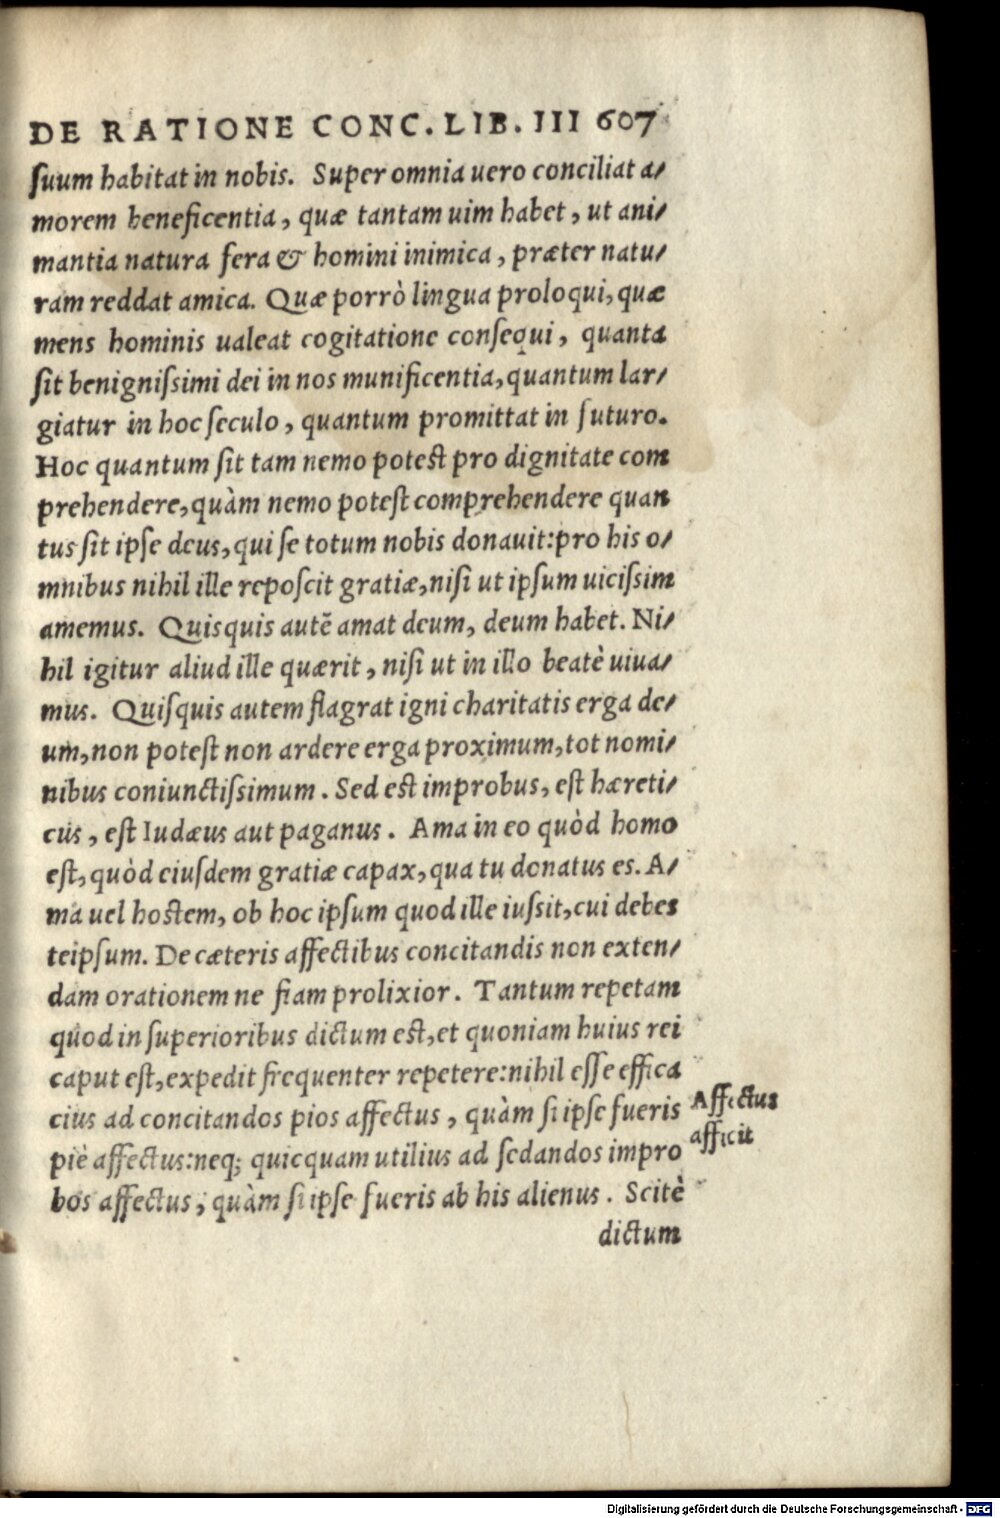 DE RATIONE CONC. LIB. III 607
suum habitat in nobis. Super omnia uero conciliat a/
morem beneficentia, quæ tantam uim habet, ut ani/
mantia natura fera & homini inimica, præter natu/
ram reddat amica. Quæ porrò lingua proloqui, quæ
mens hominis ualeat cogitatione consequi, quanta
sit benignissimi dei in nos munificentia, quantum lar/
giatur in hoc seculo, quantum promittat in futuro.
Hoc quantum sit tam nemo potest pro dignitate com
prehendere, quàm nemo potest comprehendere quan
tus sit ipse deus, qui se totum nobis donauit: pro his o/
mnibus nihil ille reposcit gratiæ, nisi ut ipsum uicissim
amemus. Quisquis autē amat deum, deum habet. Ni/
hil igitur aliud ille quærit, nisi ut in illo beatè uiua/
mus. Quisquis autem flagrat igni charitatis erga de/
um, non potest non ardere erga proximum, tot nomi/
nibus coniunctissimum. Sed est improbus, est hæreti/
cus, est Iudæus aut paganus. Ama in eo quòd homo
est, quòd eiusdem gratiæ capax, qua tu donatus es. A/
ma uel hostem, ob hoc ipsum quod ille iussit, cui debes
teipsum. De cæteris affectibus concitandis non exten/
dam orationem ne fiam prolixior. Tantum repetam
quod in superioribus dictum est, et quoniam huius rei
caput est, expedit frequenter repetere: nihil esse effica
cius ad concitandos pios affectus, quàm si ipse fueris
piè affectus: neq; quicquam utilius ad sedandos impro
bos affectus, quàm si ipse fueris ab his alienus. Scitè
dictum
Affectus
afficit
Digitalisierung gefördert durch die Deutsche Forschungsgemeinschaft - DFG